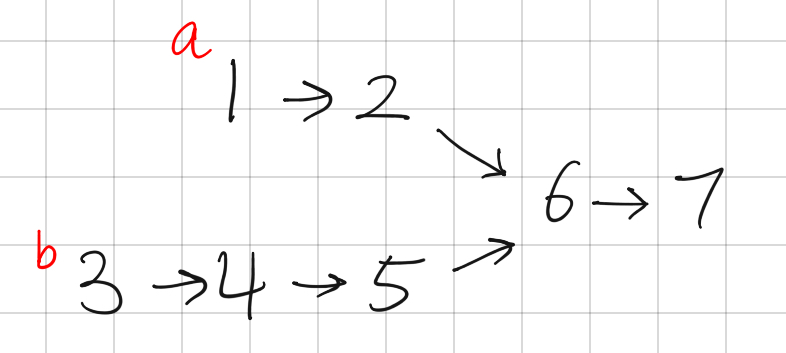 a
1 → 2
6 → 7
b
3 → 4 → 5